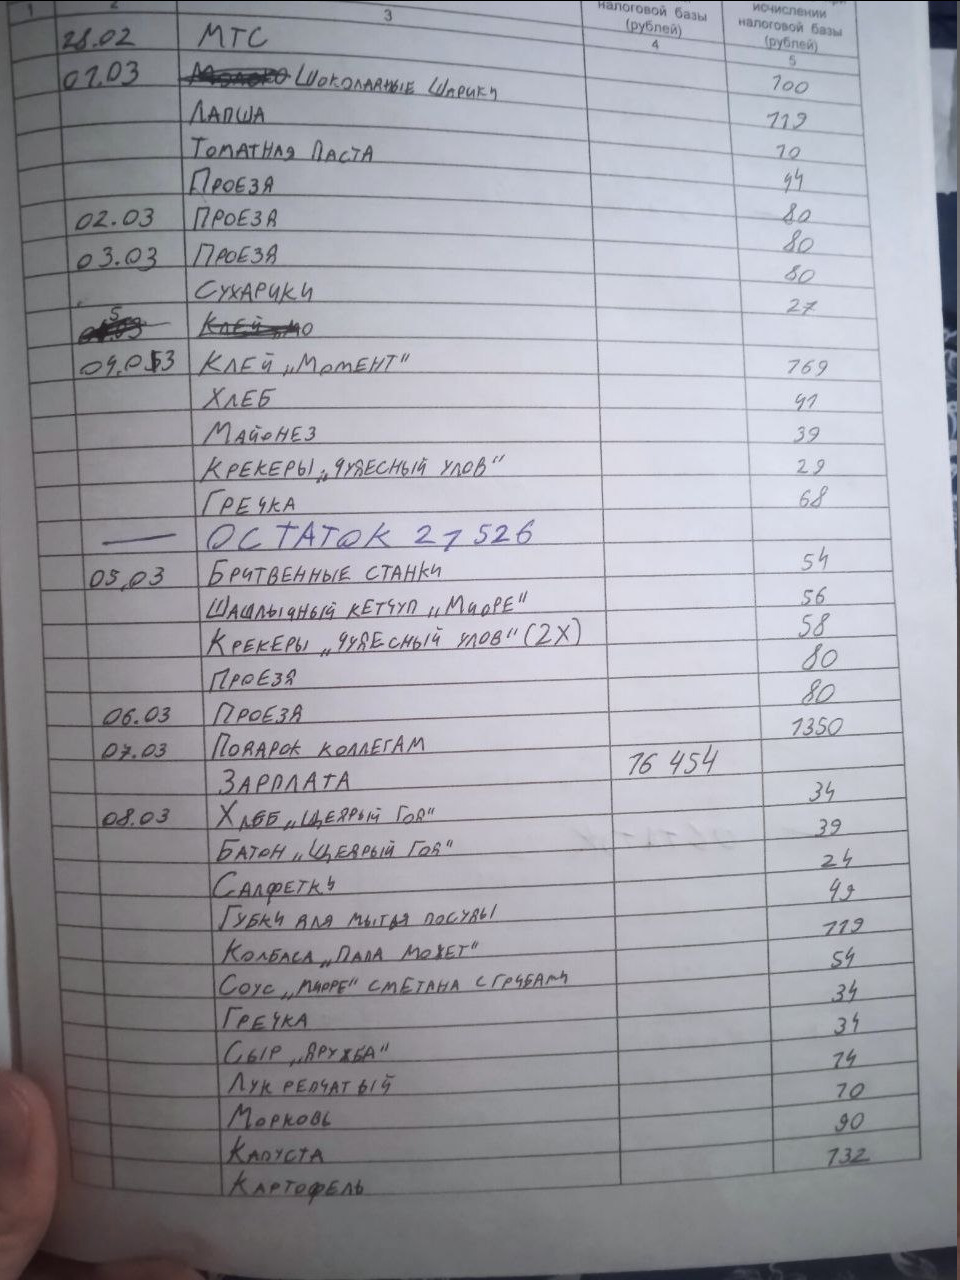 1 2 3 налоговой базы (рублей) исчислении налоговой базы (рублей)
4 5
28.02 МТС 100
01.03 Шоколадные шарики 119
Лапша 10
Томатная паста 44
Проезд 80
02.03 Проезд 80
03.03 Проезд 80
Сухарики 27
04.03 Клей „Момент" 169
Хлеб 41
Майонез 39
Крекеры „Чудесный улов" 29
Гречка 68
— ОСТАТОК 21 526
05.03 Бритвенные станки 54
Шашлычный кетчуп „Мирре" 56
Крекеры „Чудесный улов" (2х) 58
Проезд 80
06.03 Проезд 80
07.03 Подарок коллегам 1350
Зарплата 16 454
08.03 Хлеб „Щедрый Год" 34
Батон „Щедрый Год" 39
Салфетки 24
Губки для мытья посуды 49
Колбаса „Папа может" 119
Соус „Мирре" сметана с грибами 54
Гречка 34
Сыр „Дружба" 34
Лук репчатый 14
Морковь 10
Капуста 90
Картофель 132